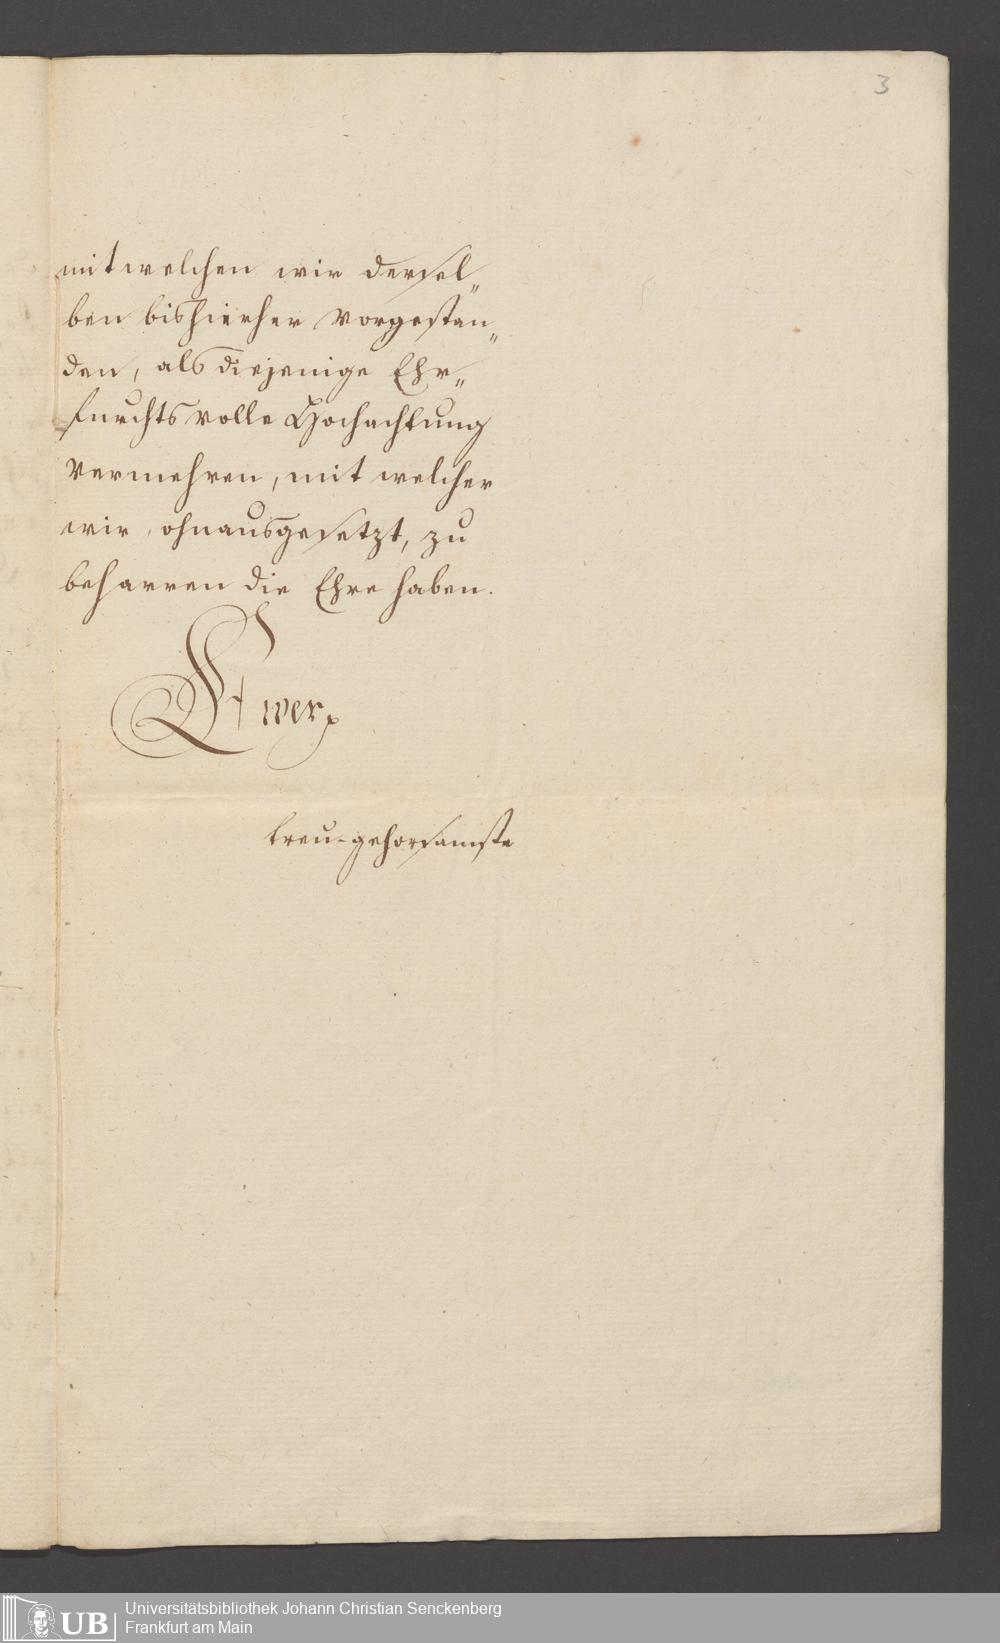 3
mit welchen wir dersel„
ben bishierher vorgestan„
den, als diejenige Ehr„
furchtsvolle Hochachtung
vermehren, mit welcher
wir, ohnausgesetzt, zu
beharren die Ehre haben.
Ewer
treu-gehorsamste
UB
Universitätsbibliothek Johann Christian Senckenberg
Frankfurt am Main